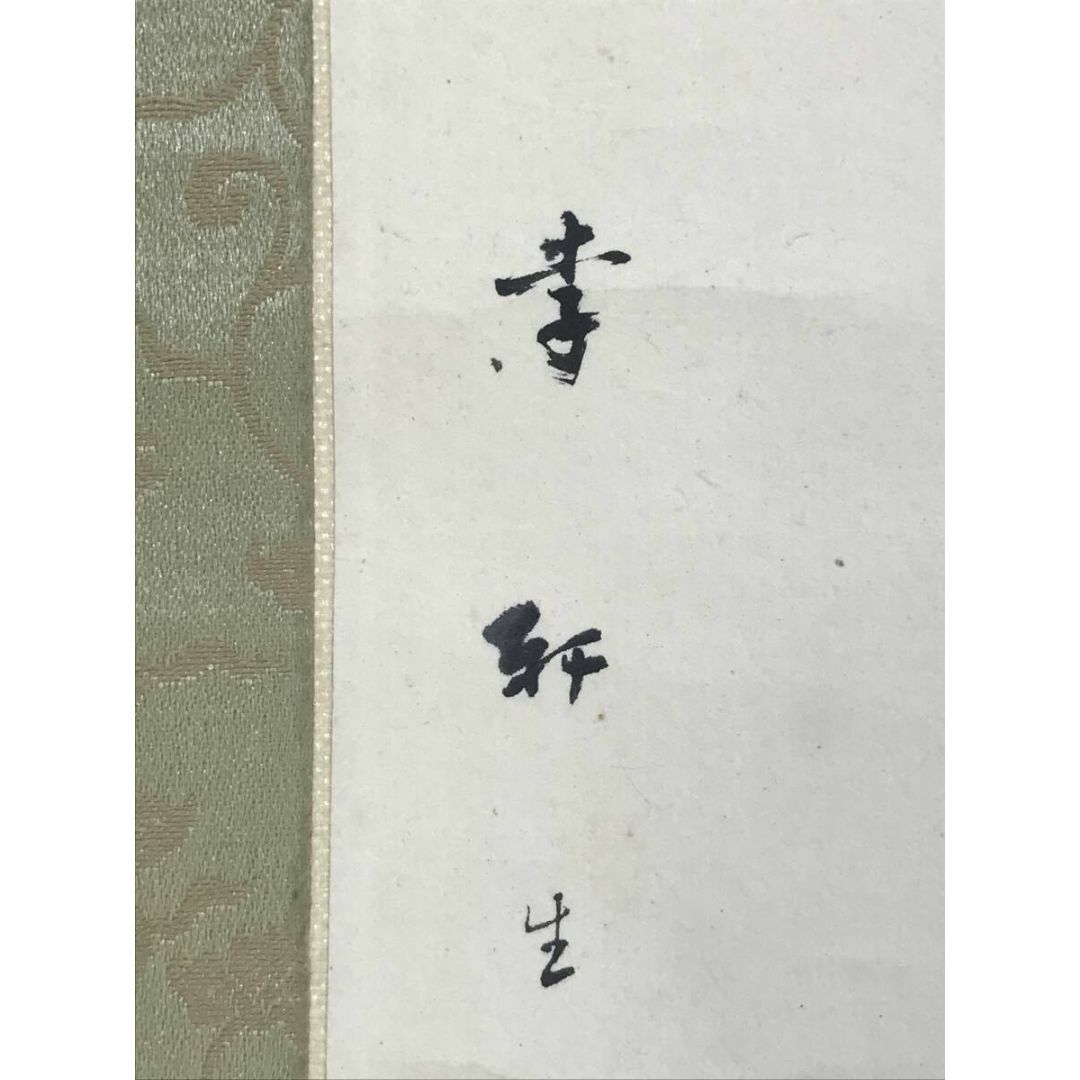 李軒生